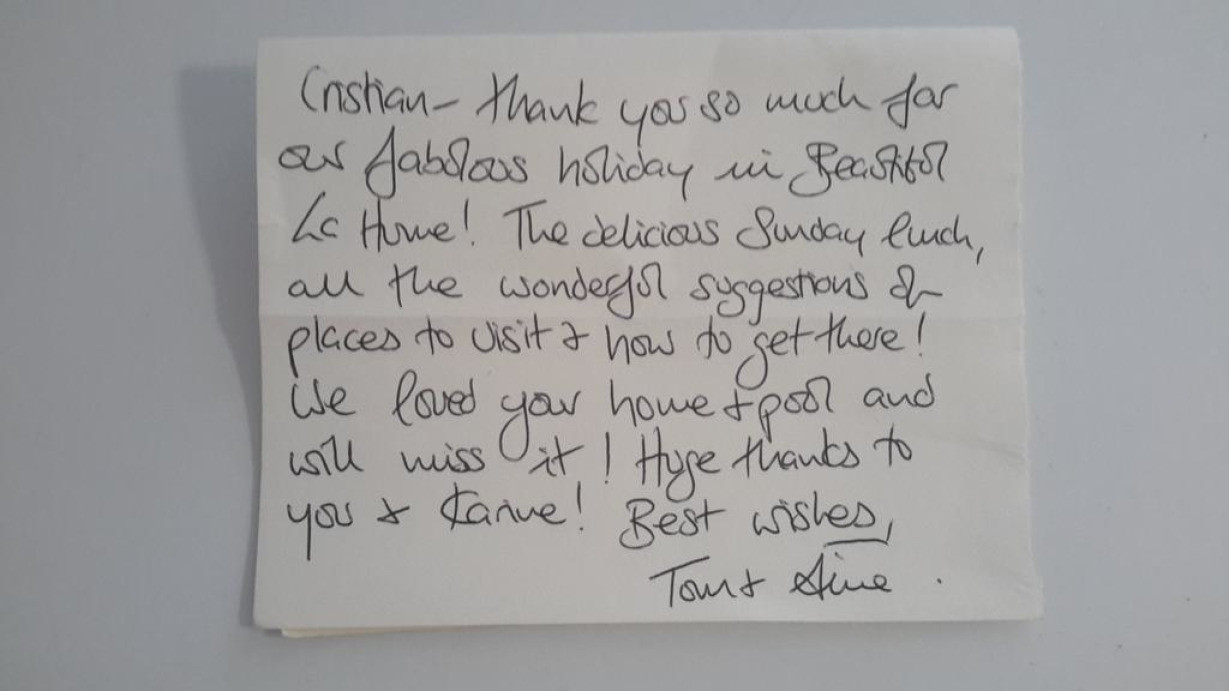 Cristian - thank you so much for
our fabulous holiday in Beautiful
La Hume! The delicious Sunday lunch,
all the wonderful suggestions of
places to visit & how to get there!
We loved your home & pool and
will miss it! Huge thanks to
you & Karine! Best wishes,
Tom &